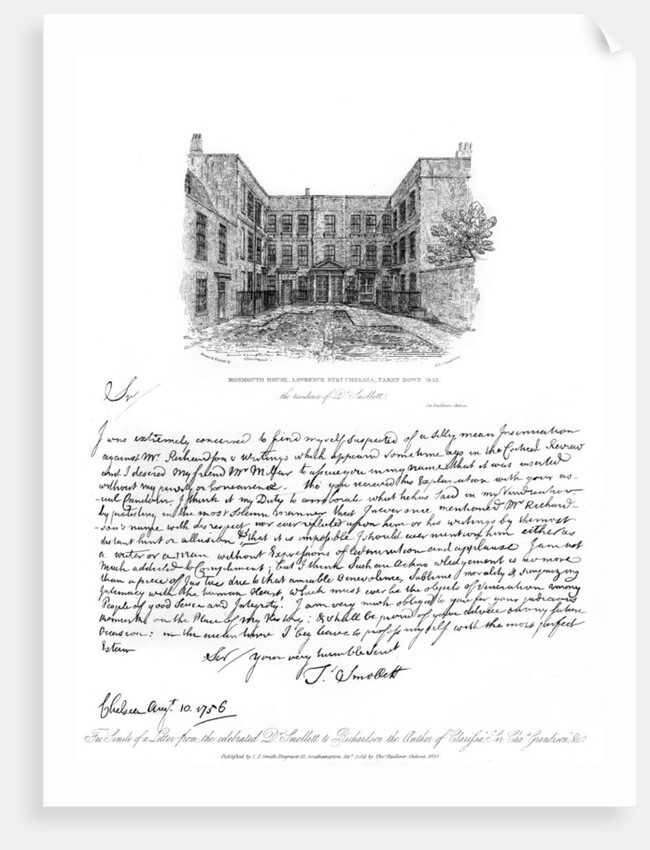 MONMOUTH HOUSE, LAWRENCE STRT CHELSEA, TAKEN DOWN 1833.
the residence of Dr. Smollett.
See Faulkner's Chelsea
Sir
I was extremely concerned to find myself suspected of a silly, mean Insinuation
against Mr. Richardson's Writings which appeared some time ago in the Critical Review
and I desired my friend Mr Millar to assure you in my name that it was inserted
without my privity or Concurrence. tho' you received this Explanation with your us-
-ual Candour, I think it my Duty to corroborate what he has Said in my Vindication
by protesting in the most Solemn manner that I never once mentioned Mr Richard-
son's name with disrespect nor ever reflected upon him or his writings by the most
distant hint or allusion & that it is impossible I should ever mention him either as
a writer or a Man without Expressions of Veneration and applause I am not
Much addicted to Compliment; but I think Such an Acknowledgement is no more
than a piece of Justice due to that amiable Benevolence, Sublime morality & surprizing
Intimacy with the human Heart, which must ever be the objects of Veneration among
People of good Sence and Integrity. I am very much obliged to you for your judicious
remarks on the Plan of my History: & shall be proud of your advice on any future
Occasion: in the mean time I beg leave to profess myself with the most perfect
Esteem
Sir / Your very humble Servt
Ts Smollett
Chelsea Augt. 10. 1756
Fac Simile of a Letter from the celebrated Dr Smollett to Richardson the Author of Clarissa, Sir Chas. Grandison, &c
Published by C. J. Smith, Engraver, Southampton Sold by Thos. Faulkner Chelsea